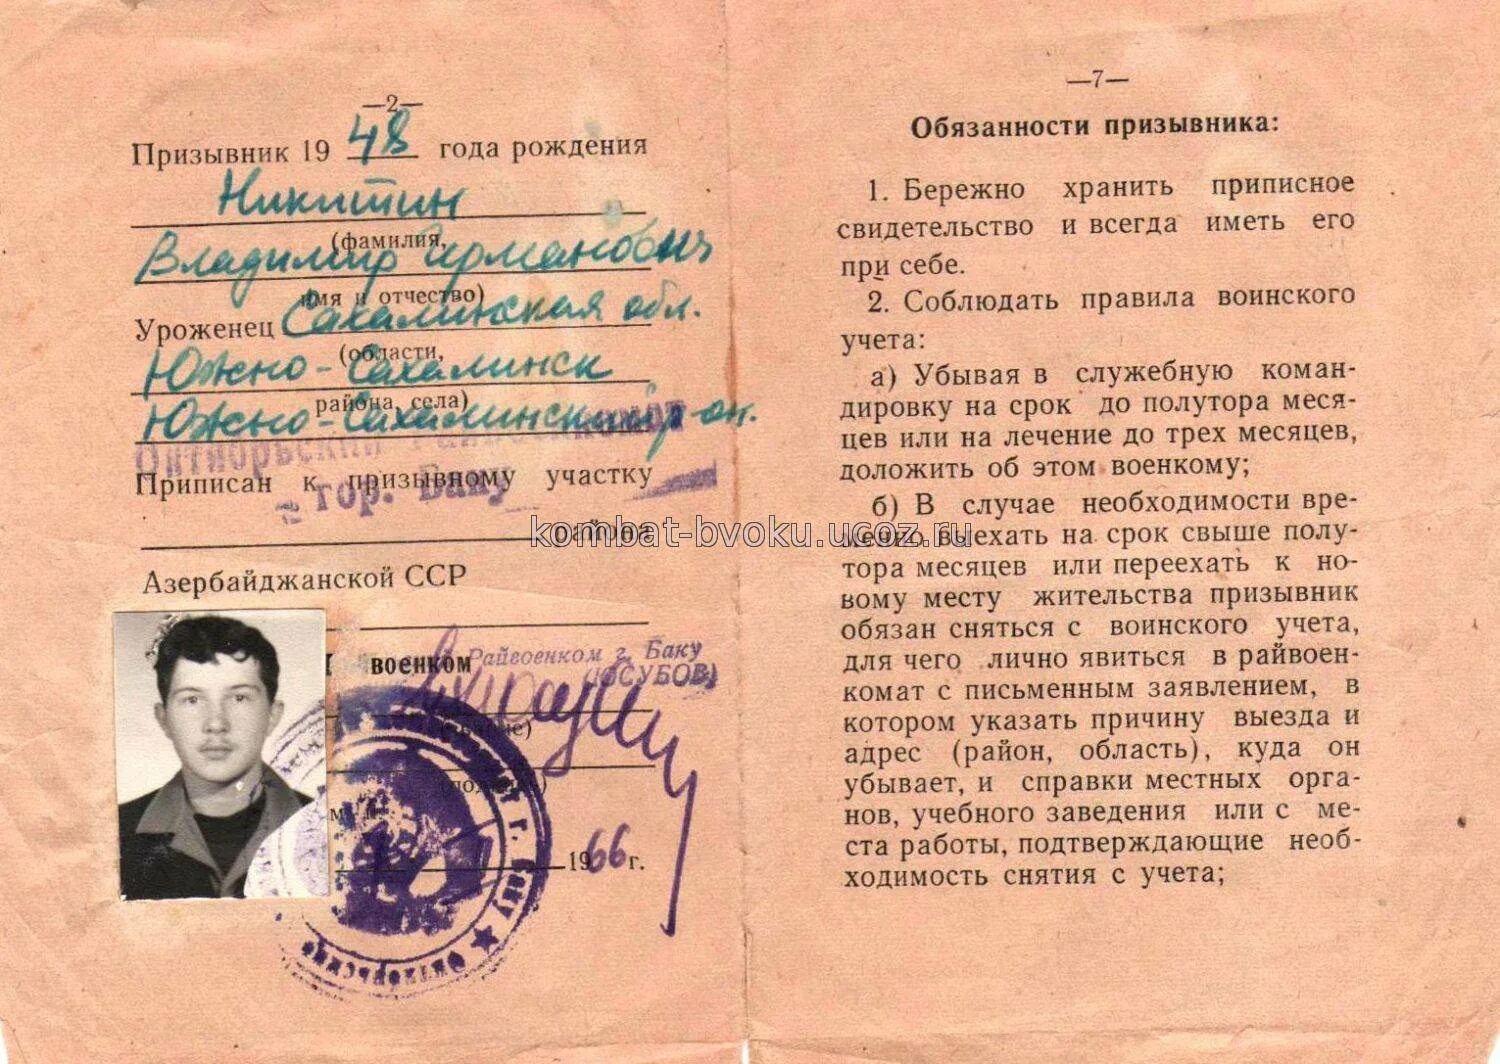 —2—
Призывник 1948 года рождения
Никитин
(фамилия,
Владимир Германович
имя и отчество)
Уроженец Сахалинская обл.
(области,
Южно-Сахалинск
района, села)
Южно-Сахалинский р-он.
Октябрьский Райвоенкомат
Приписан к призывному участку
гор. Баку
района
Азербайджанской ССР
военком
Райвоенком г. Баку
(ЮСУБОВ)
1966 г.
г. Баку ★ Октябрьский
—7—
Обязанности призывника:
1. Бережно хранить приписное
свидетельство и всегда иметь его
при себе.
2. Соблюдать правила воинского
учета:
а) Убывая в служебную коман-
дировку на срок до полутора меся-
цев или на лечение до трех месяцев,
доложить об этом военкому;
б) В случае необходимости вре-
менно выехать на срок свыше полу-
тора месяцев или переехать к но-
вому месту жительства призывник
обязан сняться с воинского учета,
для чего лично явиться в райвоен-
комат с письменным заявлением, в
котором указать причину выезда и
адрес (район, область), куда он
убывает, и справки местных орга-
нов, учебного заведения или с ме-
ста работы, подтверждающие необ-
ходимость снятия с учета;
kombat-bvoku.ucoz.ru